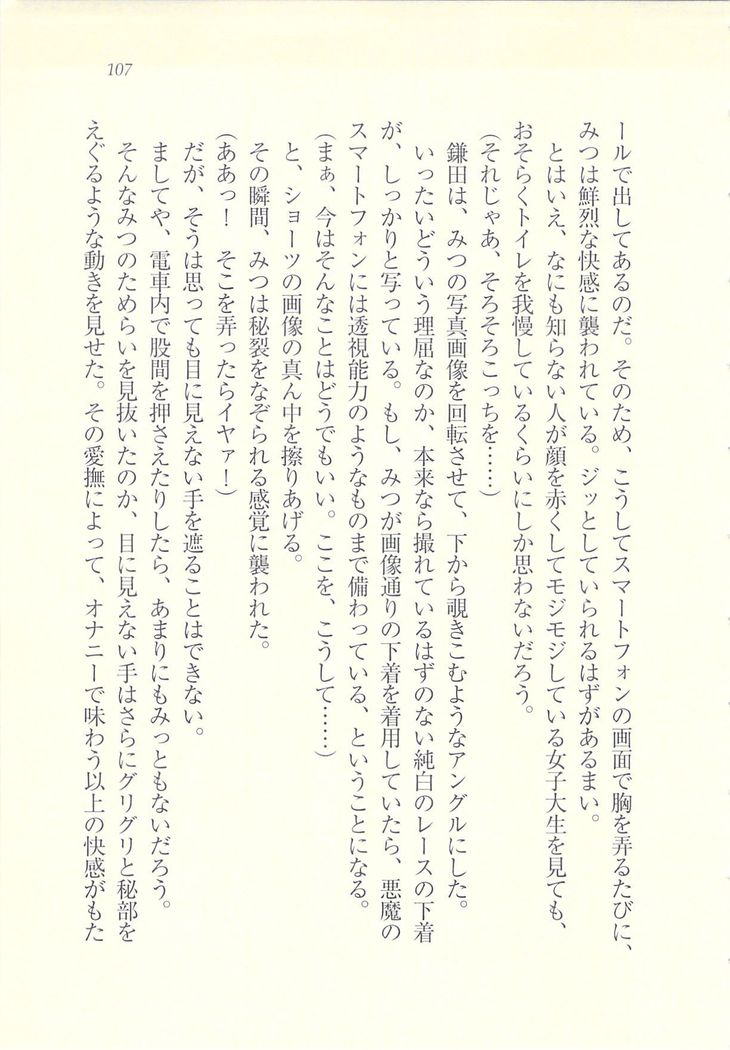 107
ールで出してあるのだ。そのため、こうしてスマートフォンの画面で胸を弄るたびに、
みつは鮮烈な快感に襲われている。ジッとしていられるはずがあるまい。
とはいえ、なにも知らない人が顔を赤くしてモジモジしている女子大生を見ても、
おそらくトイレを我慢しているくらいにしか思わないだろう。
(それじゃあ、そろそろこっちを……)
鎌田は、みつの写真画像を回転させて、下から覗きこむようなアングルにした。
いったいどういう理屈なのか、本来なら撮れているはずのない純白のレースの下着
が、しっかりと写っている。もし、みつが画像通りの下着を着用していたら、悪魔の
スマートフォンには透視能力のようなものまで備わっている、ということになる。
(まぁ、今はそんなことはどうでもいい。ここを、こうして……)
と、ショーツの画像の真ん中を擦りあげる。
その瞬間、みつは秘裂をなぞられる感覚に襲われた。
(ああっ！　そこを弄ったらイヤァ！)
だが、そうは思っても目に見えない手を遮ることはできない。
ましてや、電車内で股間を押さえたりしたら、あまりにもみっともないだろう。
そんなみつのためらいを見抜いたのか、目に見えない手はさらにグリグリと秘部を
えぐるような動きを見せた。その愛撫によって、オナニーで味わう以上の快感がもた